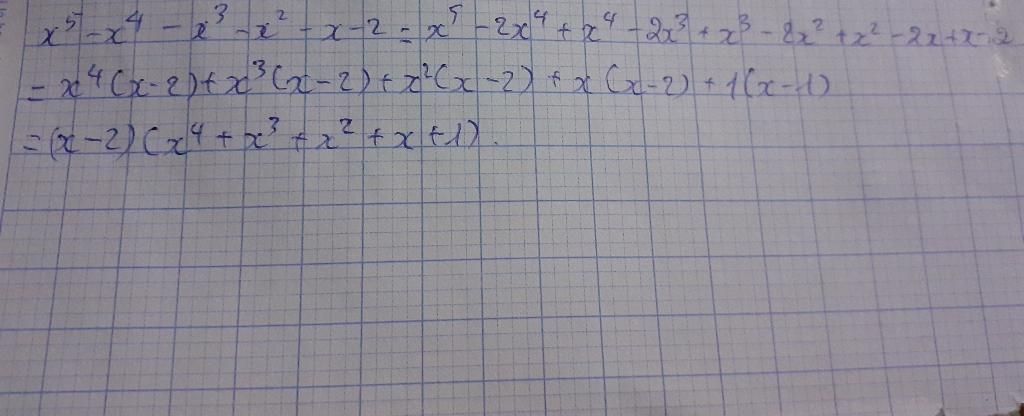 x⁵ - x⁴ - x³ - x² - x - 2 = x⁵ - 2x⁴ + x⁴ - 2x³ + x³ - 2x² + x² - 2x + x - 2
= x⁴(x-2) + x³(x-2) + x²(x-2) + x(x-2) + 1(x-1)
= (x-2)(x⁴ + x³ + x² + x + 1).